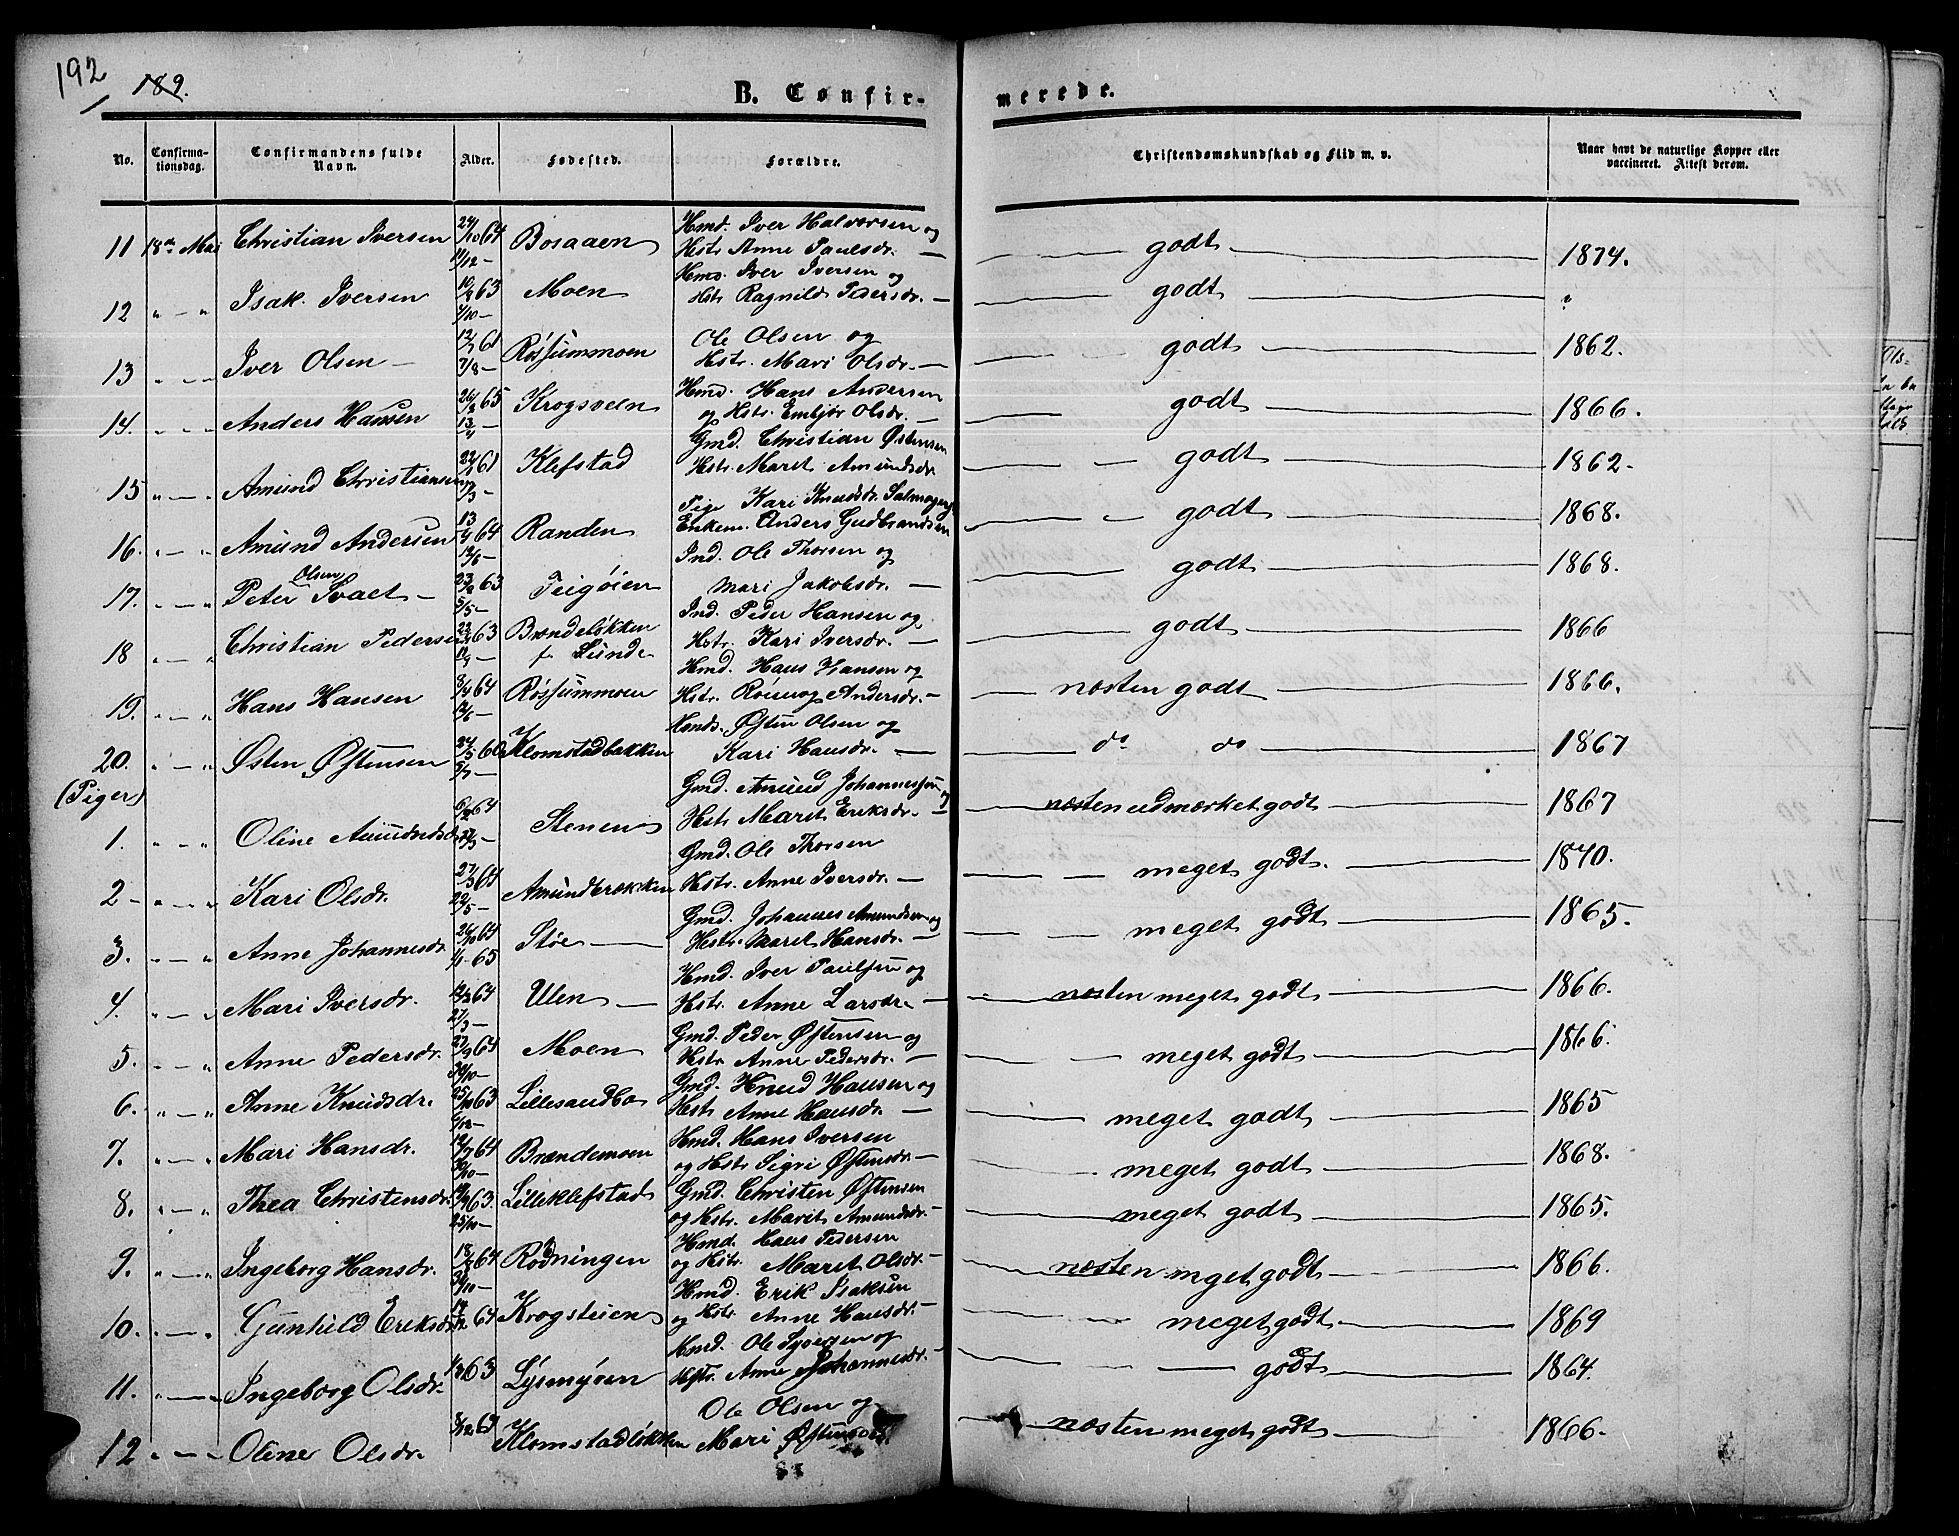 192
189.
B. Confir-
merede.
No.
Confirma-
tionsdag.
Confirmandens fulde
Navn.
Alder.
Fødested.
Forældre.
Christendomskundskab og Flid m. v.
Naar havt de naturlige Kopper eller
vaccineret. Attest derom.
11 18de Mai Christian Iversen 24/10 64 Bosaaen Hmd. Iver Halvorsen og
11/12 - Hstr. Anne Paulsdr. — godt 1874.
12 " — " Isak Iversen 63 Moen Hmd. Iver Iversen og
/10 - Hstr. Ragnild Pedersdr. — godt "
13 " — " Iver Olsen — 12/7 61 Røssummoen Ole Olsen og
7/8 - Hstr. Mari Olsdr. — godt 1862.
14. " — " Anders Hansen 65 Krogsveen Hmd. Hans Andersen
og Hstr. Embjør Olsdr. — godt 1866.
15 " — " Amund Christiansen 61 Klefstad Gmd. Christian Østensen
Hstr. Maret Amundsdr. godt 1862.
16. " — " Amund Andersen 64 Randen Pige Kari Knudsdr.
Enkem. Anders Gudbrandsen godt 1868.
17. " — " Peter Olsen Svaet — 63 Teigøien Ind. Ole Thorsen og
5/5 - Mari Jakobsdr. — godt 1868.
18 " — " Christian Pedersen 63 Brændeløkken Ind. Peder Hansen og
Sunde Hstr. Kari Iversdr. — godt 1866
19. " — " Hans Hansen 8/4 64 Røssummoen Hmd. Hans Hansen og
12/6 - Hstr. Rønnog Andersdr. — næsten godt 1866.
20. " — " Østen Østensen 60 Klomstadbakken Hmd. Østen Olsen og
Kari Hansdr. — do do 1867
(Piger)
1. " — " Oline Amundsdr. 64 Stenen Gmd. Amund Johannessen og
Hstr. Marit Eriksdr. — næsten udmærket godt 1867
2 — " — " Kari Olsdr. 27/3 64 Amundbrækken Gmd. Ole Thorsen
22/5 - Hstr. Anne Iversdr. — meget godt. 1870.
3. " — " Anne Johannesdr. 26/10 64 Støe — Gmd. Johannes Amundsen og
1/1 65 Hstr. Marit Hansdr. — meget godt 1865.
4. " — " Mari Iversdr. 64 Ulen — Hmd. Iver Paulsen og
Hstr. Anne Larsdr. — næsten meget godt 1866.
5. " — " Anne Pedersdr. 27/9 64 Moen Gmd. Peder Østensen og
30/10 - Hstr. Anne Pedersdr. — meget godt 1866.
6. " — " Anne Knudsdr. 25/10 63 Lillesandbo Gmd. Knud Hansen og
Hstr. Anne Hansdr. — meget godt 1865
7. " — " Mari Hansdr. 64 Brændemoen Hmd. Hans Iversen
og Hstr. Sigri Østensdr. — meget godt 1868.
8. " — " Thea Christensdr. 63. Lilleklefstad Gmd. Christen Østensen
25/10 - og Hstr. Marit Amundsdr. — meget godt 1865.
9. " — " Ingeborg Hansdr. 64 Rødningen Hmd. Hans Pedersen
og Hstr. Maret Olsdr. — næsten meget godt 1866.
10. " — " Gunhild Eriksdr. 64 Krogstuen Hmd. Erik Isaksen
og Hstr. Anne Hansdr. — meget godt 1869
11. " — " Ingeborg Olsdr. 63 Lysmyren Hmd. Ole Syversen og
Hstr. Anne Johannesdr. — godt 1864.
12 " — " Oline Olsdr. 63 Klomstadløkken Ole Olsen og
Mari Østensdr. næsten meget godt 1866.